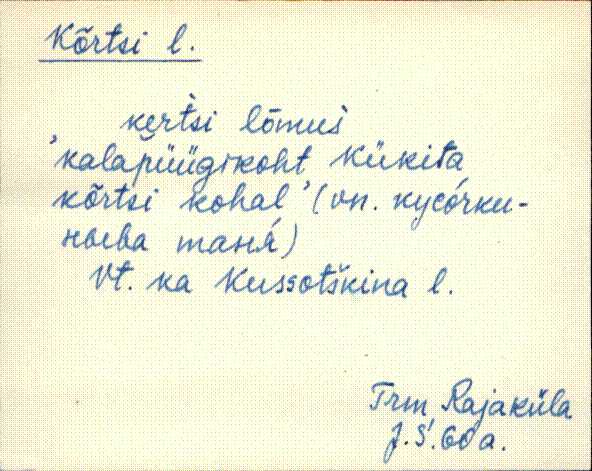 Kõrtsi l.
kẽrt̀si lõmuś
'kalapüügikoht Kükita
kõrtsi kohal' (vn. кусо́рки-
ныва таня́)
Vt. ka Kussotškina l.
Trm Rajaküla
J.S. 60 a.